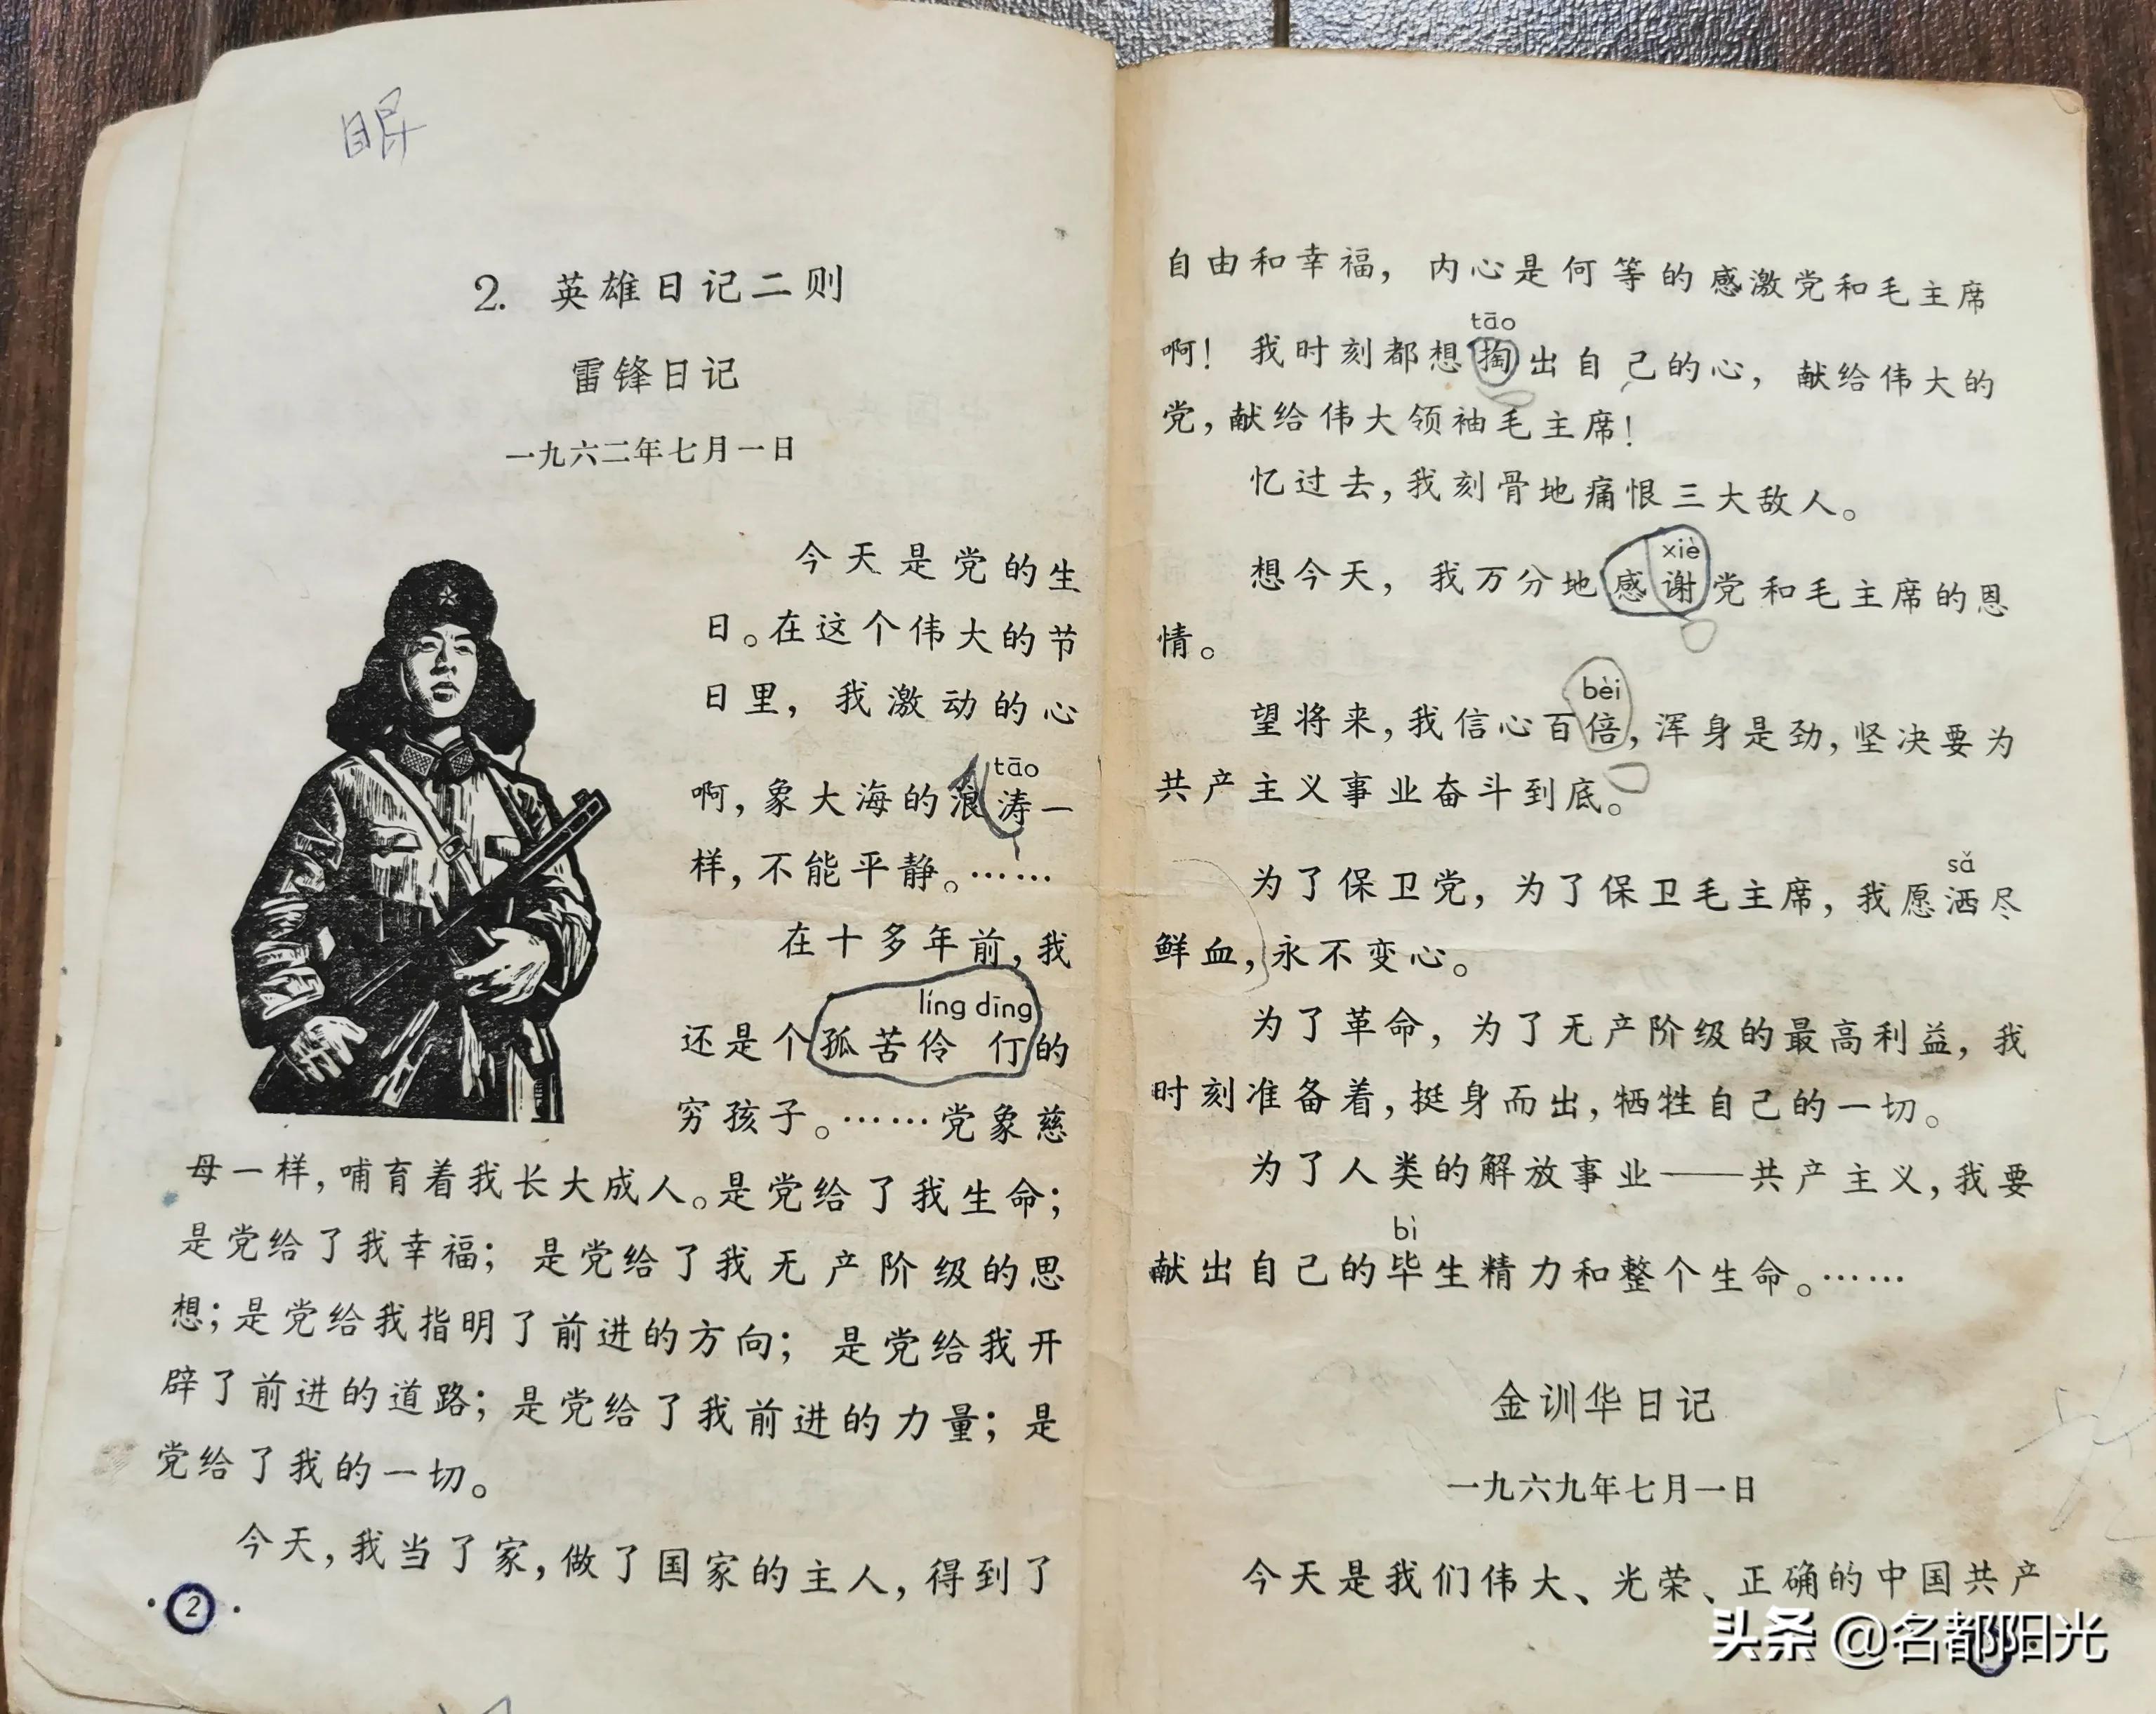 眼
2. 英雄日记二则
雷锋日记
一九六二年七月一日
今天是党的生
日。在这个伟大的节
日里，我激动的心
tāo
啊，象大海的浪涛一
样，不能平静。……
在十多年前，我
líng dīng
还是个孤苦伶仃的
穷孩子。……党象慈
母一样，哺育着我长大成人。是党给了我生命；
是党给了我幸福；是党给了我无产阶级的思
想；是党给我指明了前进的方向；是党给我开
辟了前进的道路；是党给了我前进的力量；是
党给了我的一切。
今天，我当了家，做了国家的主人，得到了
·2·
自由和幸福，内心是何等的感激党和毛主席
tāo
啊！我时刻都想掏出自己的心，献给伟大的
党，献给伟大领袖毛主席！
忆过去，我刻骨地痛恨三大敌人。
xiè
想今天，我万分地感谢党和毛主席的恩
情。
bèi
望将来，我信心百倍，浑身是劲，坚决要为
共产主义事业奋斗到底。
sǎ
为了保卫党，为了保卫毛主席，我愿洒尽
鲜血，永不变心。
为了革命，为了无产阶级的最高利益，我
时刻准备着，挺身而出，牺牲自己的一切。
为了人类的解放事业——共产主义，我要
bì
献出自己的毕生精力和整个生命。……
金训华日记
一九六九年七月一日
今天是我们伟大、光荣、正确的中国共产
头条 @名都阳光